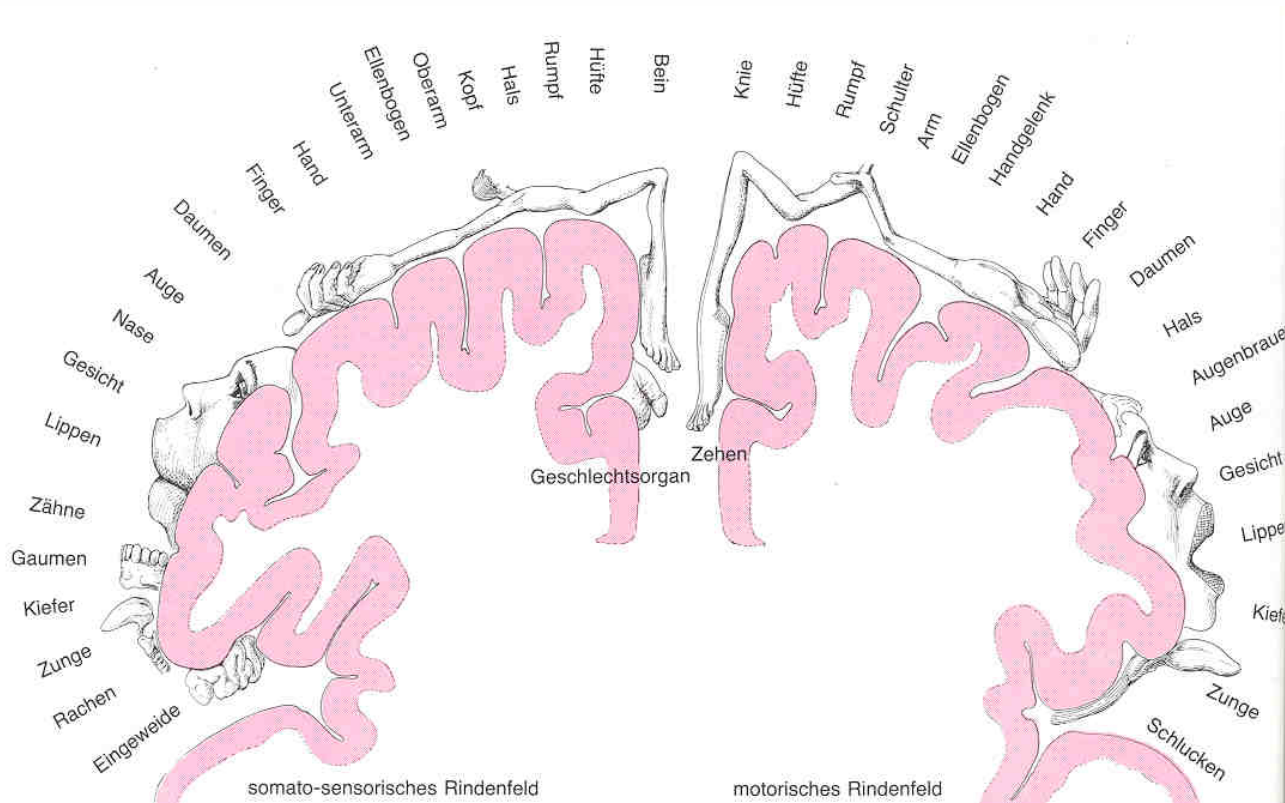 Eingeweide
Rachen
Zunge
Kiefer
Gaumen
Zähne
Lippen
Gesicht
Nase
Auge
Daumen
Finger
Hand
Unterarm
Ellenbogen
Oberarm
Kopf
Hals
Rumpf
Hüfte
Bein
Geschlechtsorgan
Zehen
Knie
Hüfte
Rumpf
Schulter
Arm
Ellenbogen
Handgelenk
Hand
Finger
Daumen
Hals
Augenbraue
Auge
Gesicht
Lippe
Kiefe
Zunge
Schlucken
somato-sensorisches Rindenfeld
motorisches Rindenfeld